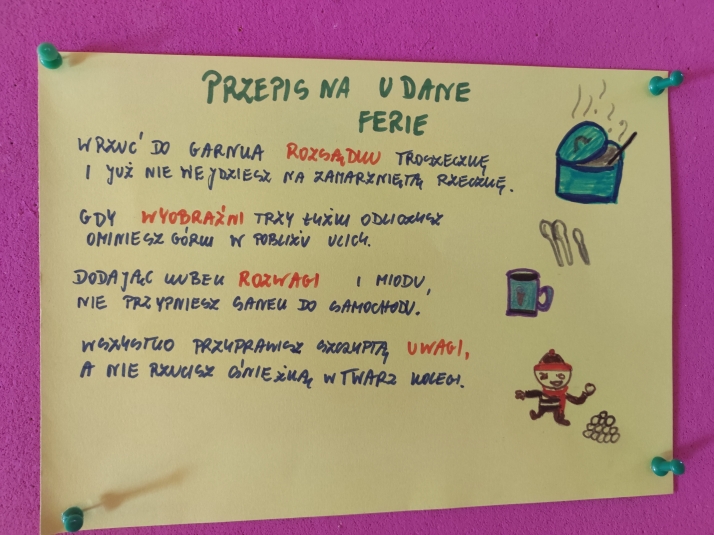 PRZEPIS NA UDANE
FERIE
WRZUĆ DO GARNKA ROZSĄDKU TROSZECZKĘ
I JUŻ NIE WEJDZIESZ NA ZAMARZNIĘTĄ RZECZKĘ.
GDY WYOBRAŹNI TRZY ŁYŻKI ODLICZYSZ
OMINIESZ GÓRKI W POBLIŻU ULICY.
DODAJĄC KUBEK ROZWAGI I MIODU,
NIE PRZYPNIESZ SANEK DO SAMOCHODU.
WSZYSTKO PRZYPRAWISZ SZCZYPTĄ UWAGI,
A NIE RZUCISZ ŚNIEŻKĄ W TWARZ KOLEGI.